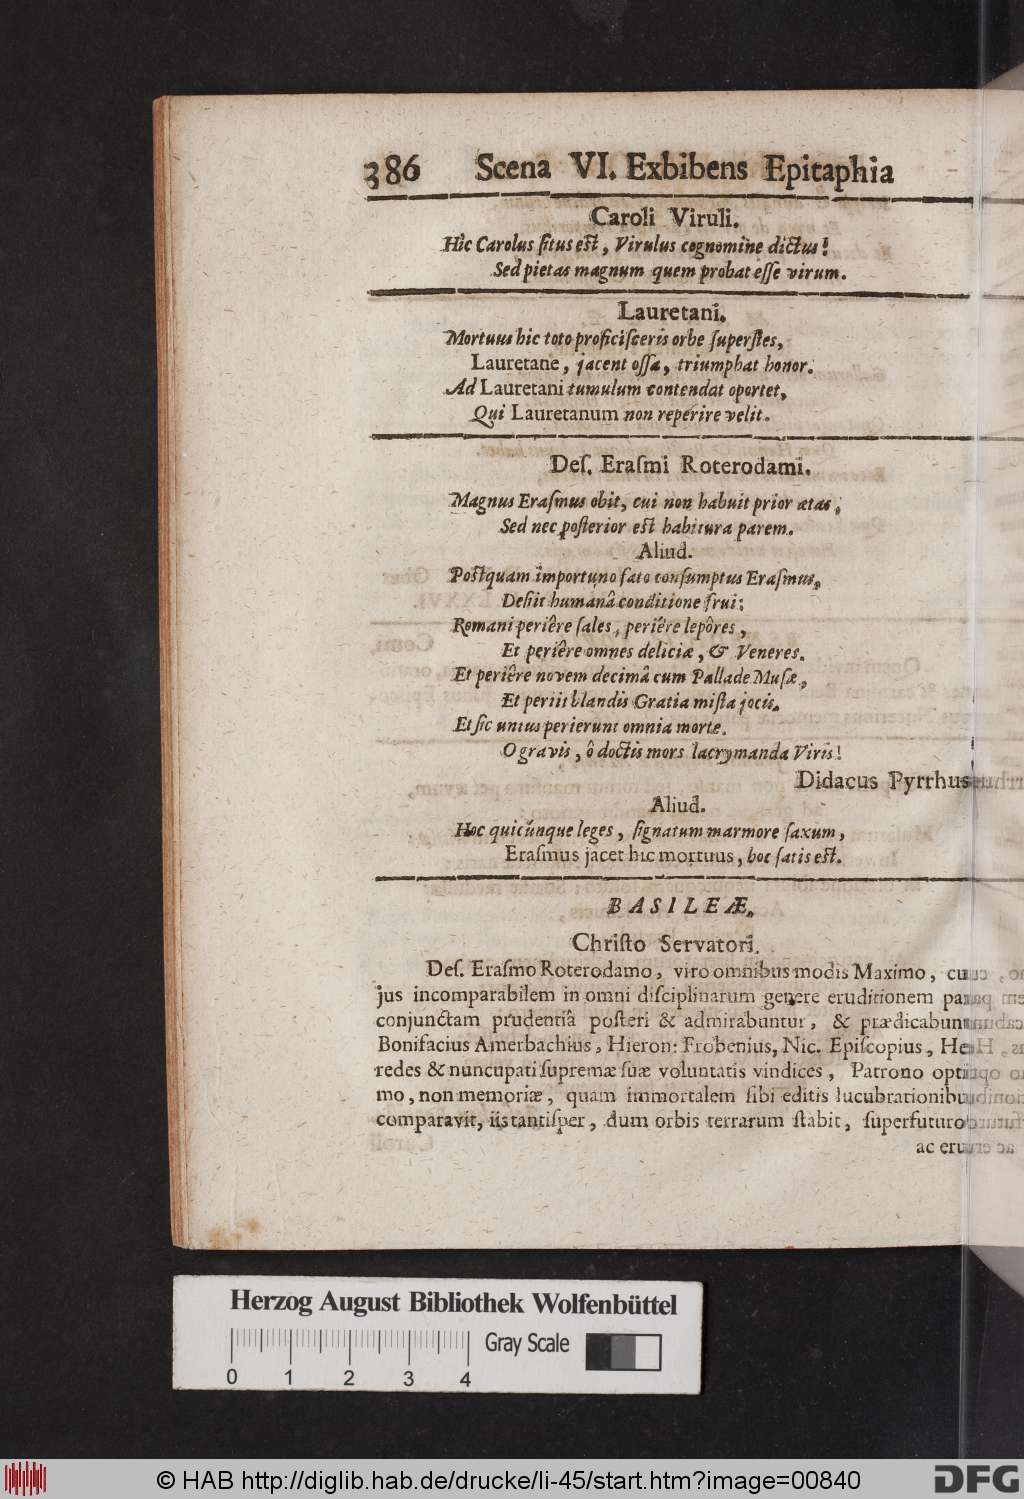 386 Scena VI. Exbibens Epitaphia
Caroli Viruli.
Hic Carolus ſitus eſt, Virulus cognomine dictus!
Sed pietas magnum quem probat eſſe virum.
Lauretani.
Mortuus hic toto proficiſceris orbe ſuperſtes,
Lauretane, jacent oſſa, triumphat honor.
Ad Lauretani tumulum contendat oportet,
Qui Lauretanum non reperire velit.
Deſ. Eraſmi Roterodami.
Magnus Eraſmus obit, cui non habuit prior ætas,
Sed nec poſterior eſt habitura parem.
Aliud.
Poſtquam importuno fato conſumptus Eraſmus,
Deſiit humanâ conditione frui;
Romani periêre ſales, periére lepôres,
Et periêre omnes deliciæ, & Veneres.
Et periêre novem decimâ cum Pallade Muſæ,
Et periit blandis Gratia miſta jocis.
Et ſic unius perierunt omnia morte.
O gravis, ô doctis mors lacrymanda Viris!
Didacus Pyrrhus
Aliud.
Hoc quicúnque leges, ſignatum marmore ſaxum,
Eraſmus jacet hic mortuus, hoc ſatis eſt.
BASILEÆ.
Chriſto Servatori.
Deſ. Eraſmo Roterodamo, viro omnibus modis Maximo, cu
jus incomparabilem in omni diſciplinarum genere eruditionem pa
conjunctam prudentiâ poſteri & admirabuntur, & prædicabun
Bonifacius Amerbachius, Hieron: Frobenius, Nic. Epiſcopius, He
redes & nuncupati ſupremæ ſuæ voluntatis vindices, Patrono opti
mo, non memoriæ, quam immortalem ſibi editis lucubrationibu
comparavit, iis tantiſper, dum orbis terrarum ſtabit, ſuperfuturo
ac eru
Herzog August Bibliothek Wolfenbüttel
Gray Scale
0 1 2 3 4
© HAB http://diglib.hab.de/drucke/li-45/start.htm?image=00840
DFG